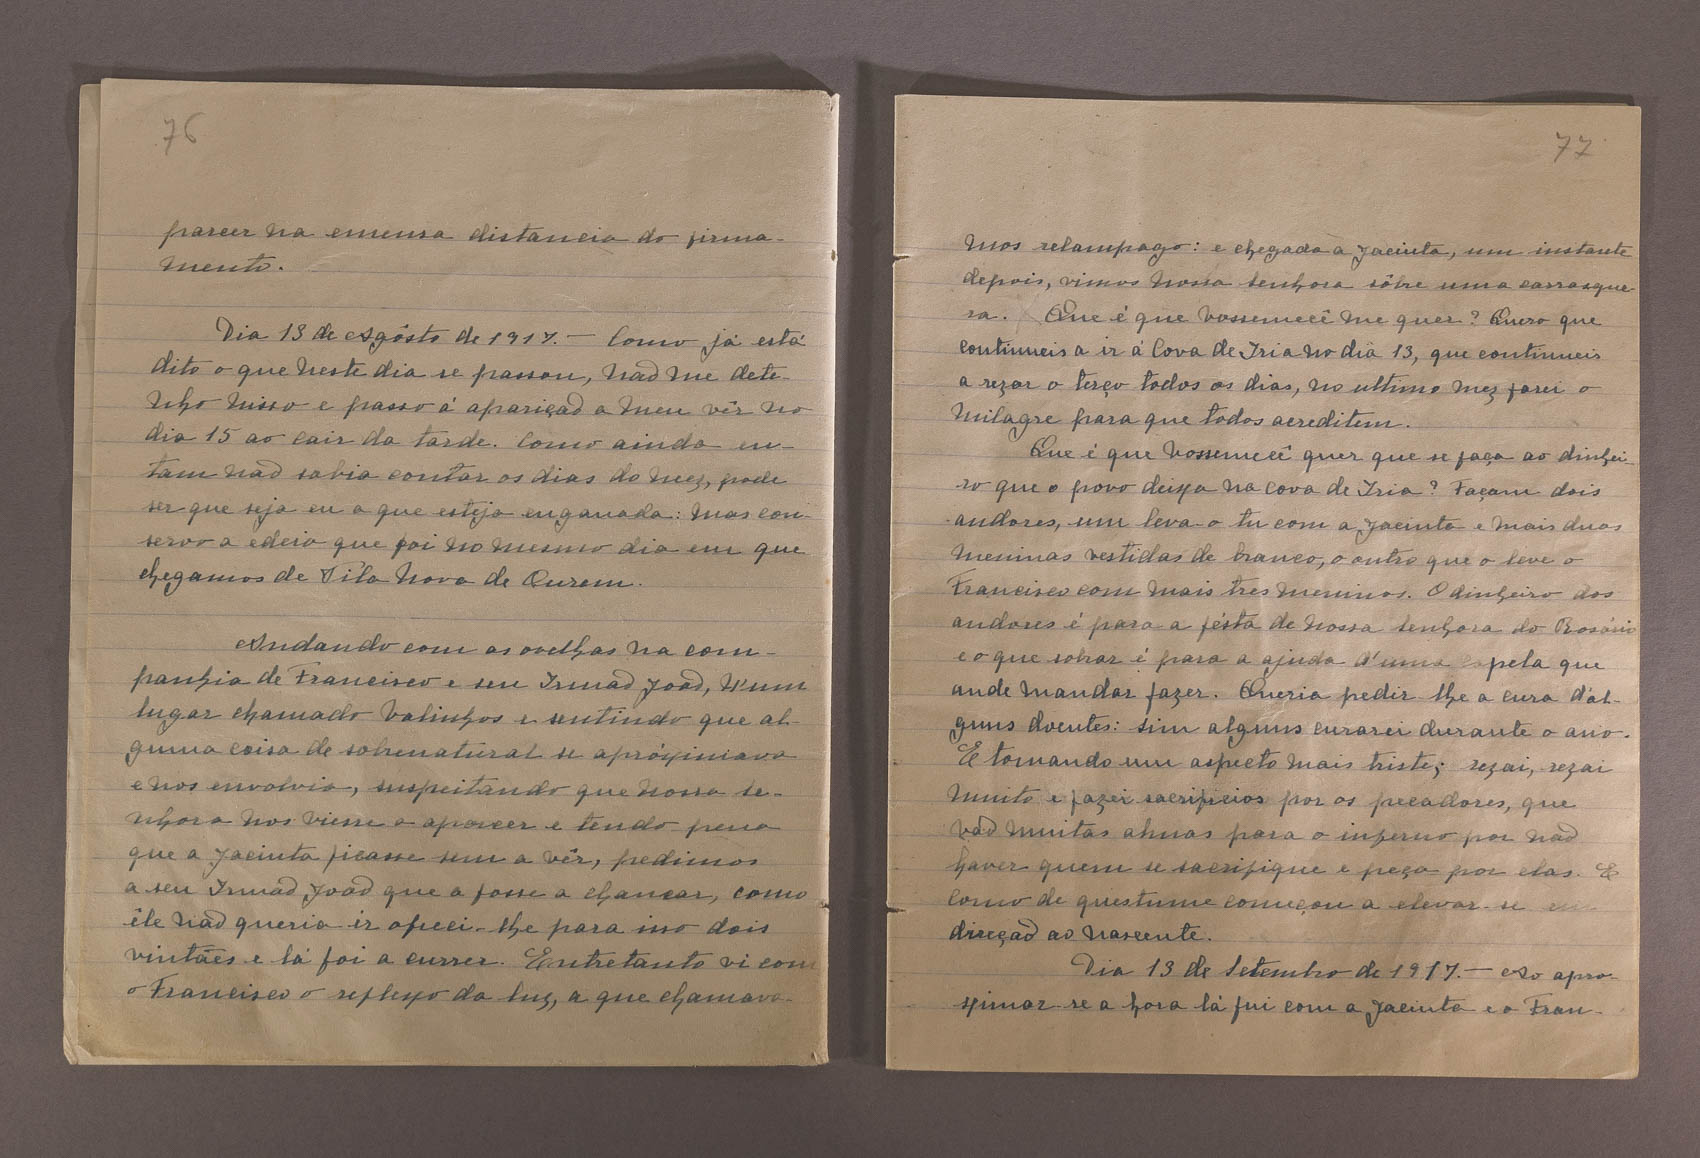 76
parcer na emensa distancia do firma-
mento.
Dia 13 de Agôsto de 1917. — Como já está
dito o que neste dia se passou, não me dete-
nho nisso e passo á aparição a meu vêr no
dia 15 ao cair da tarde. Como ainda en-
tam não sabia contar os dias do mez, pode
ser que seja eu a que esteja enganada: mas con-
servo a edeia que foi no mesmo dia em que
chegamos de Vila Nova de Ourem.
Andando com as ovelhas na com-
panhia de Francisco e seu Irmão João, n'um
lugar chamado Valinhos e sentindo que al-
guma coisa de sobrenatural se apróximava
e nos envolvia, suspeitando que Nossa Se-
nhora nos viesse a aparcer e tendo pena
que a Jacinta ficasse sem a vêr, pedimos
a seu Irmão João que a fosse a chamar, como
êle não queria ir ofreci-lhe para isso dois
vintães e lá foi a currer. Entretanto vi com
o Francisco o reflexo da luz, a que chamava-
77
mos relampago: e chegada a Jacinta, um instante
depois, vimos Nossa Senhora sôbre uma carrasquei-
ra. Que é que Vossemecê me quer? Quero que
continueis a ir á Cova de Iria no dia 13, que continueis
a rezar o terço todos os dias, no ultimo mez farei o
milagre para que todos acreditem.
Que é que Vossemecê quer que se faça ao dinhei-
ro que o povo deixa na Cova de Iria? Façam dois
andores, um leva-o tu com a Jacinta e mais duas
meninas vestidas de branco, o outro que o leve o
Francisco com mais tres meninos. O dinheiro dos
andores é para a fésta de Nossa Senhora do Rosário
e o que sobrar é para a ajuda d'uma capela que
ande mandar fazer. Queria pedir-lhe a cura d'al-
guns doentes: sim alguns curarei durante o ano.
E tomando um aspecto mais triste; rezai, rezai
muito e fazei sacrificios por os pecadores, que
vão muitas almas para o inferno por não
haver quem se sacrifique e peça por elas. E
como de questume começou a elevar-se em
direção ao nascente.
Dia 13 de Setembro de 1917. — Ao apro-
ximar-se a hora lá fui com a Jacinta e o Fran-